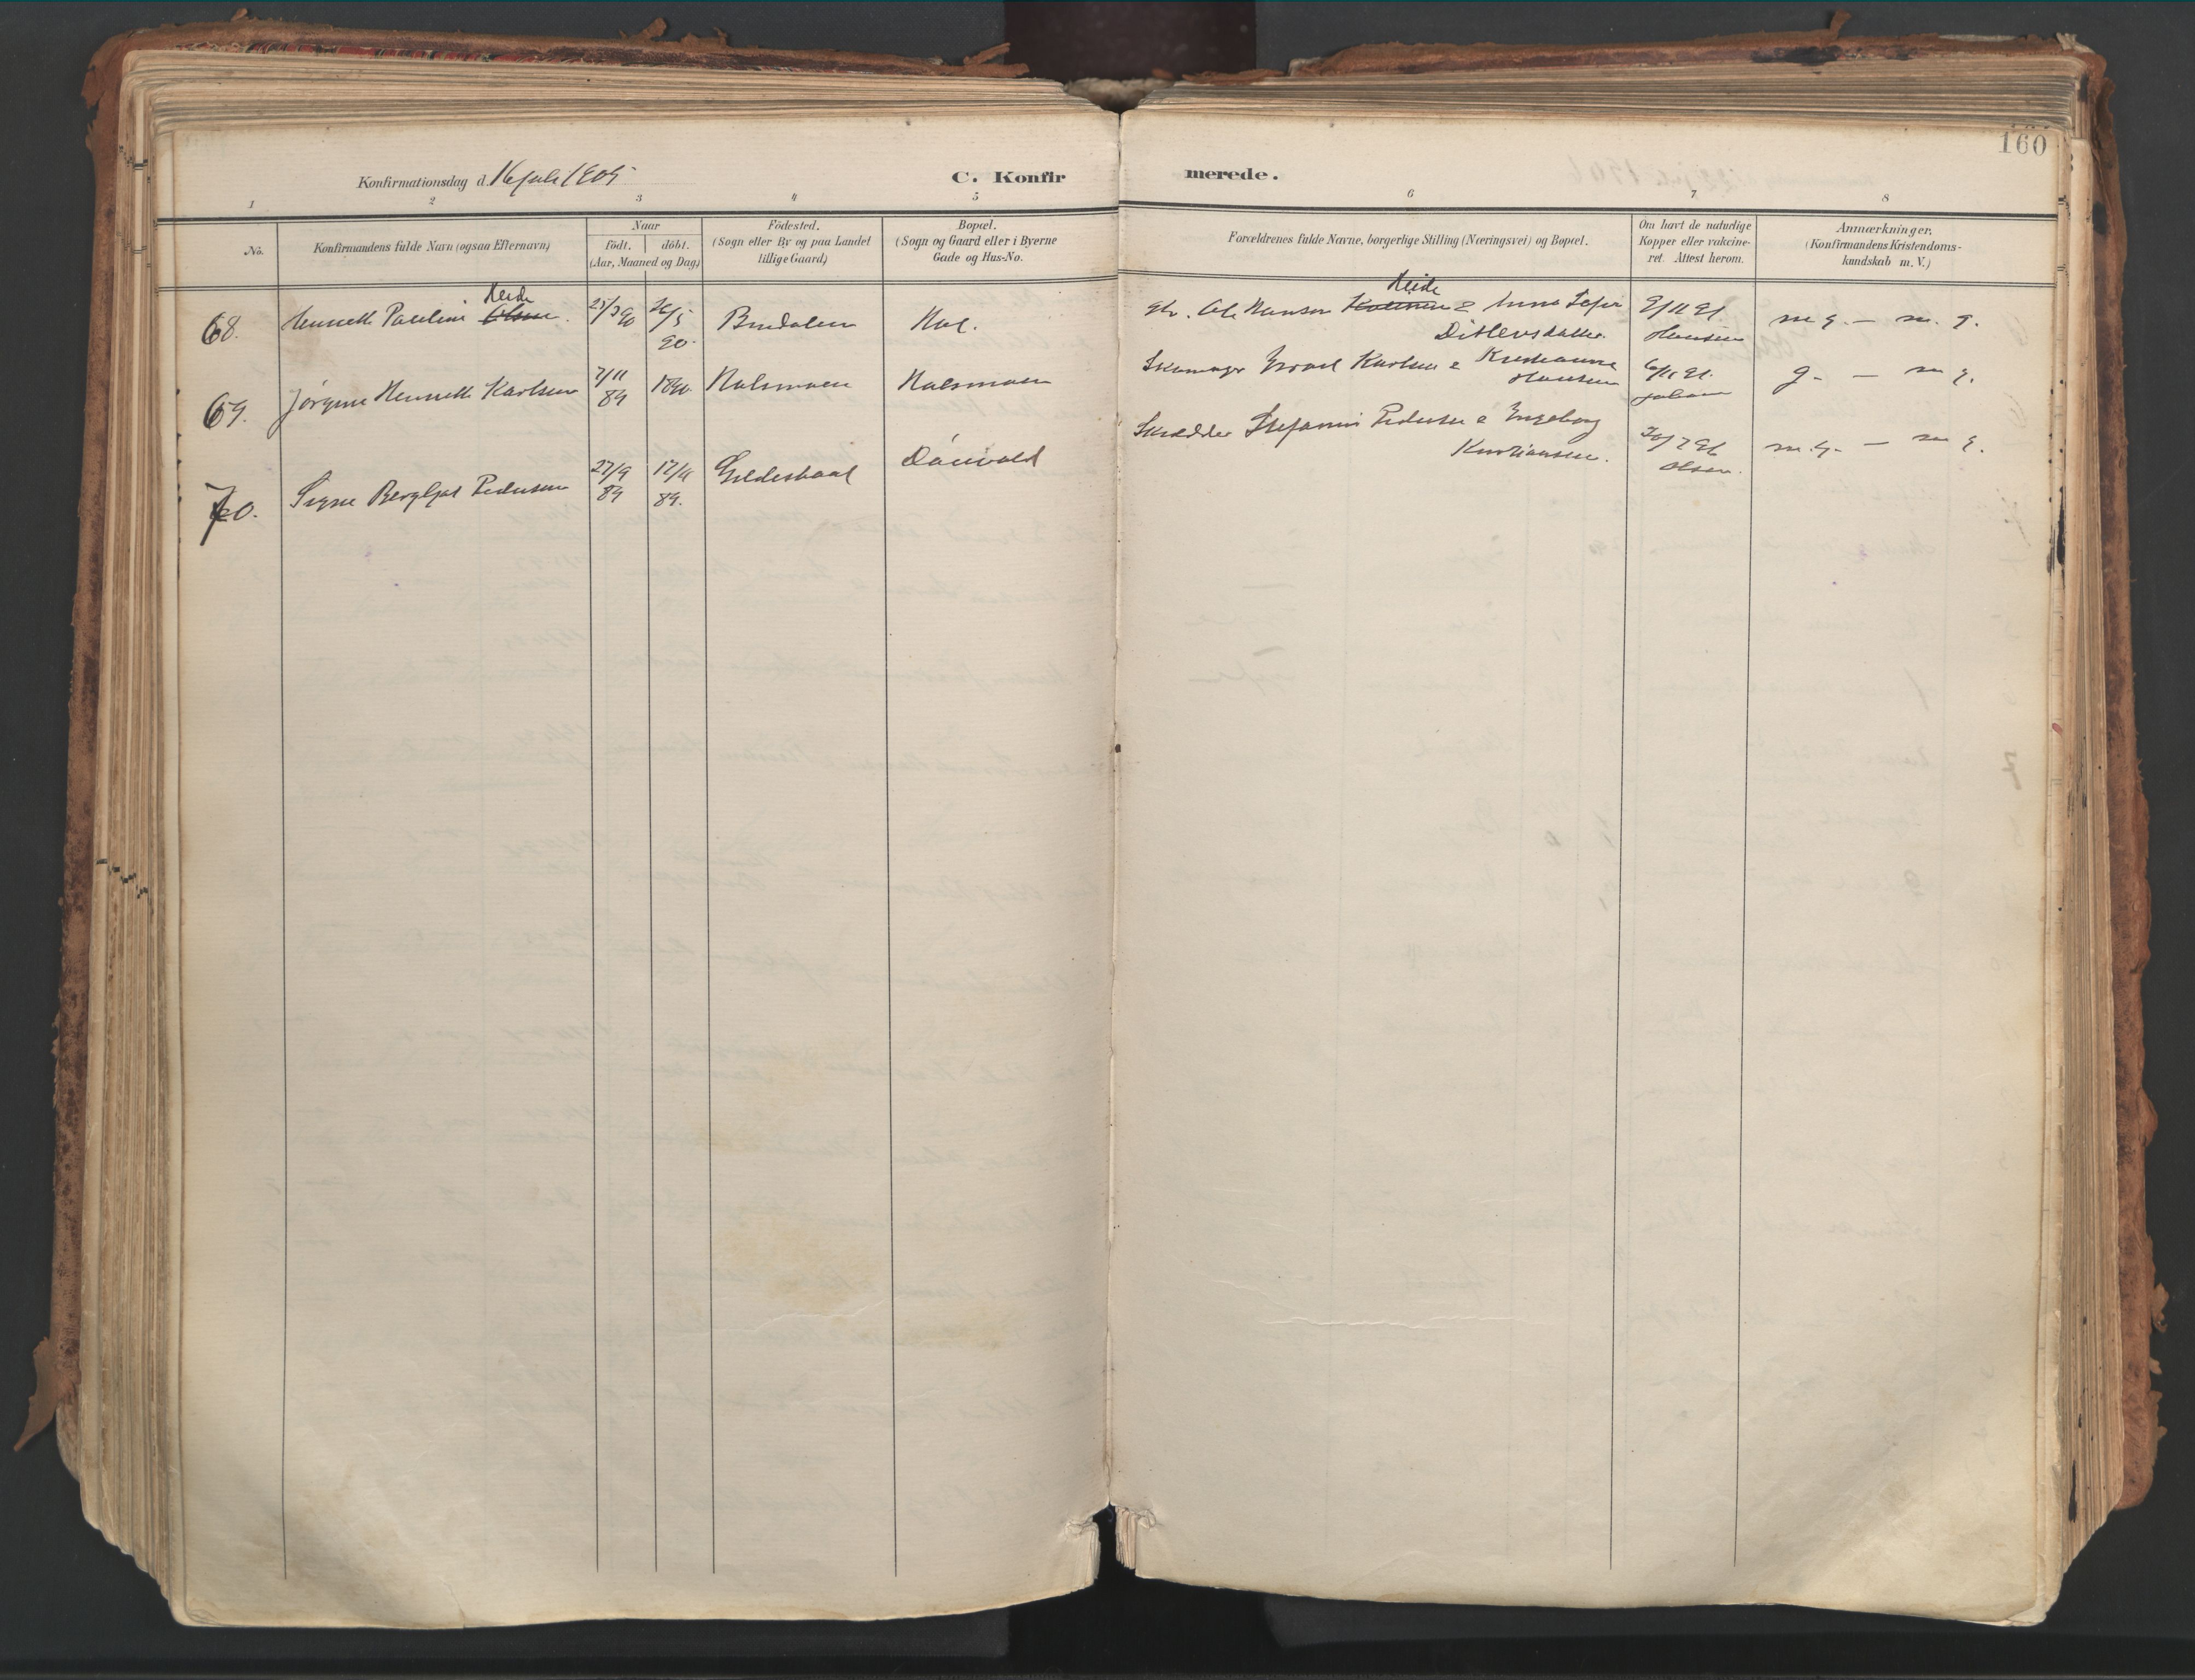 160
Konfirmationsdag d. 16 juli 1905
C. Konfirmerede.
1 2 3 4 5 6 7 8
No.
Konfirmandens fulde Navn (ogsaa Efternavn)
Naar
födt. döbt.
(Aar, Maaned og Dag)
Födested.
(Sogn eller By og paa Landet
tillige Gaard)
Bopæl.
(Sogn og Gaard eller i Byerne
Gade og Hus-No.
Forældrenes fulde Navne, borgerlige Stilling (Næringsvei) og Bopæl.
Om havt de naturlige
Kopper eller vakcine-
ret. Attest herom.
Anmærkninger.
(Konfirmandens Kristendoms-
kundskab m. V.)
68. Henrette Pauline Olsen 25/3 90 26/5 90. Hol. Ole Hansen & Anna
Ditlevsdatter. 9/11 91 Hansen m g. — m. g.
69. Jørgine Henrette Karlsen 7/11 89 1890. Halsmoen Halsmoen Skomager Karlsen & Kristianna
Hansen 6/11 91. g. — m g.
70. Signe Bergljot Pedersen 27/9 89 17/11 89. Gildeskaal Skrædder Pedersen & Ingeborg
Kristiansen. Olsen. m.g. — m g.